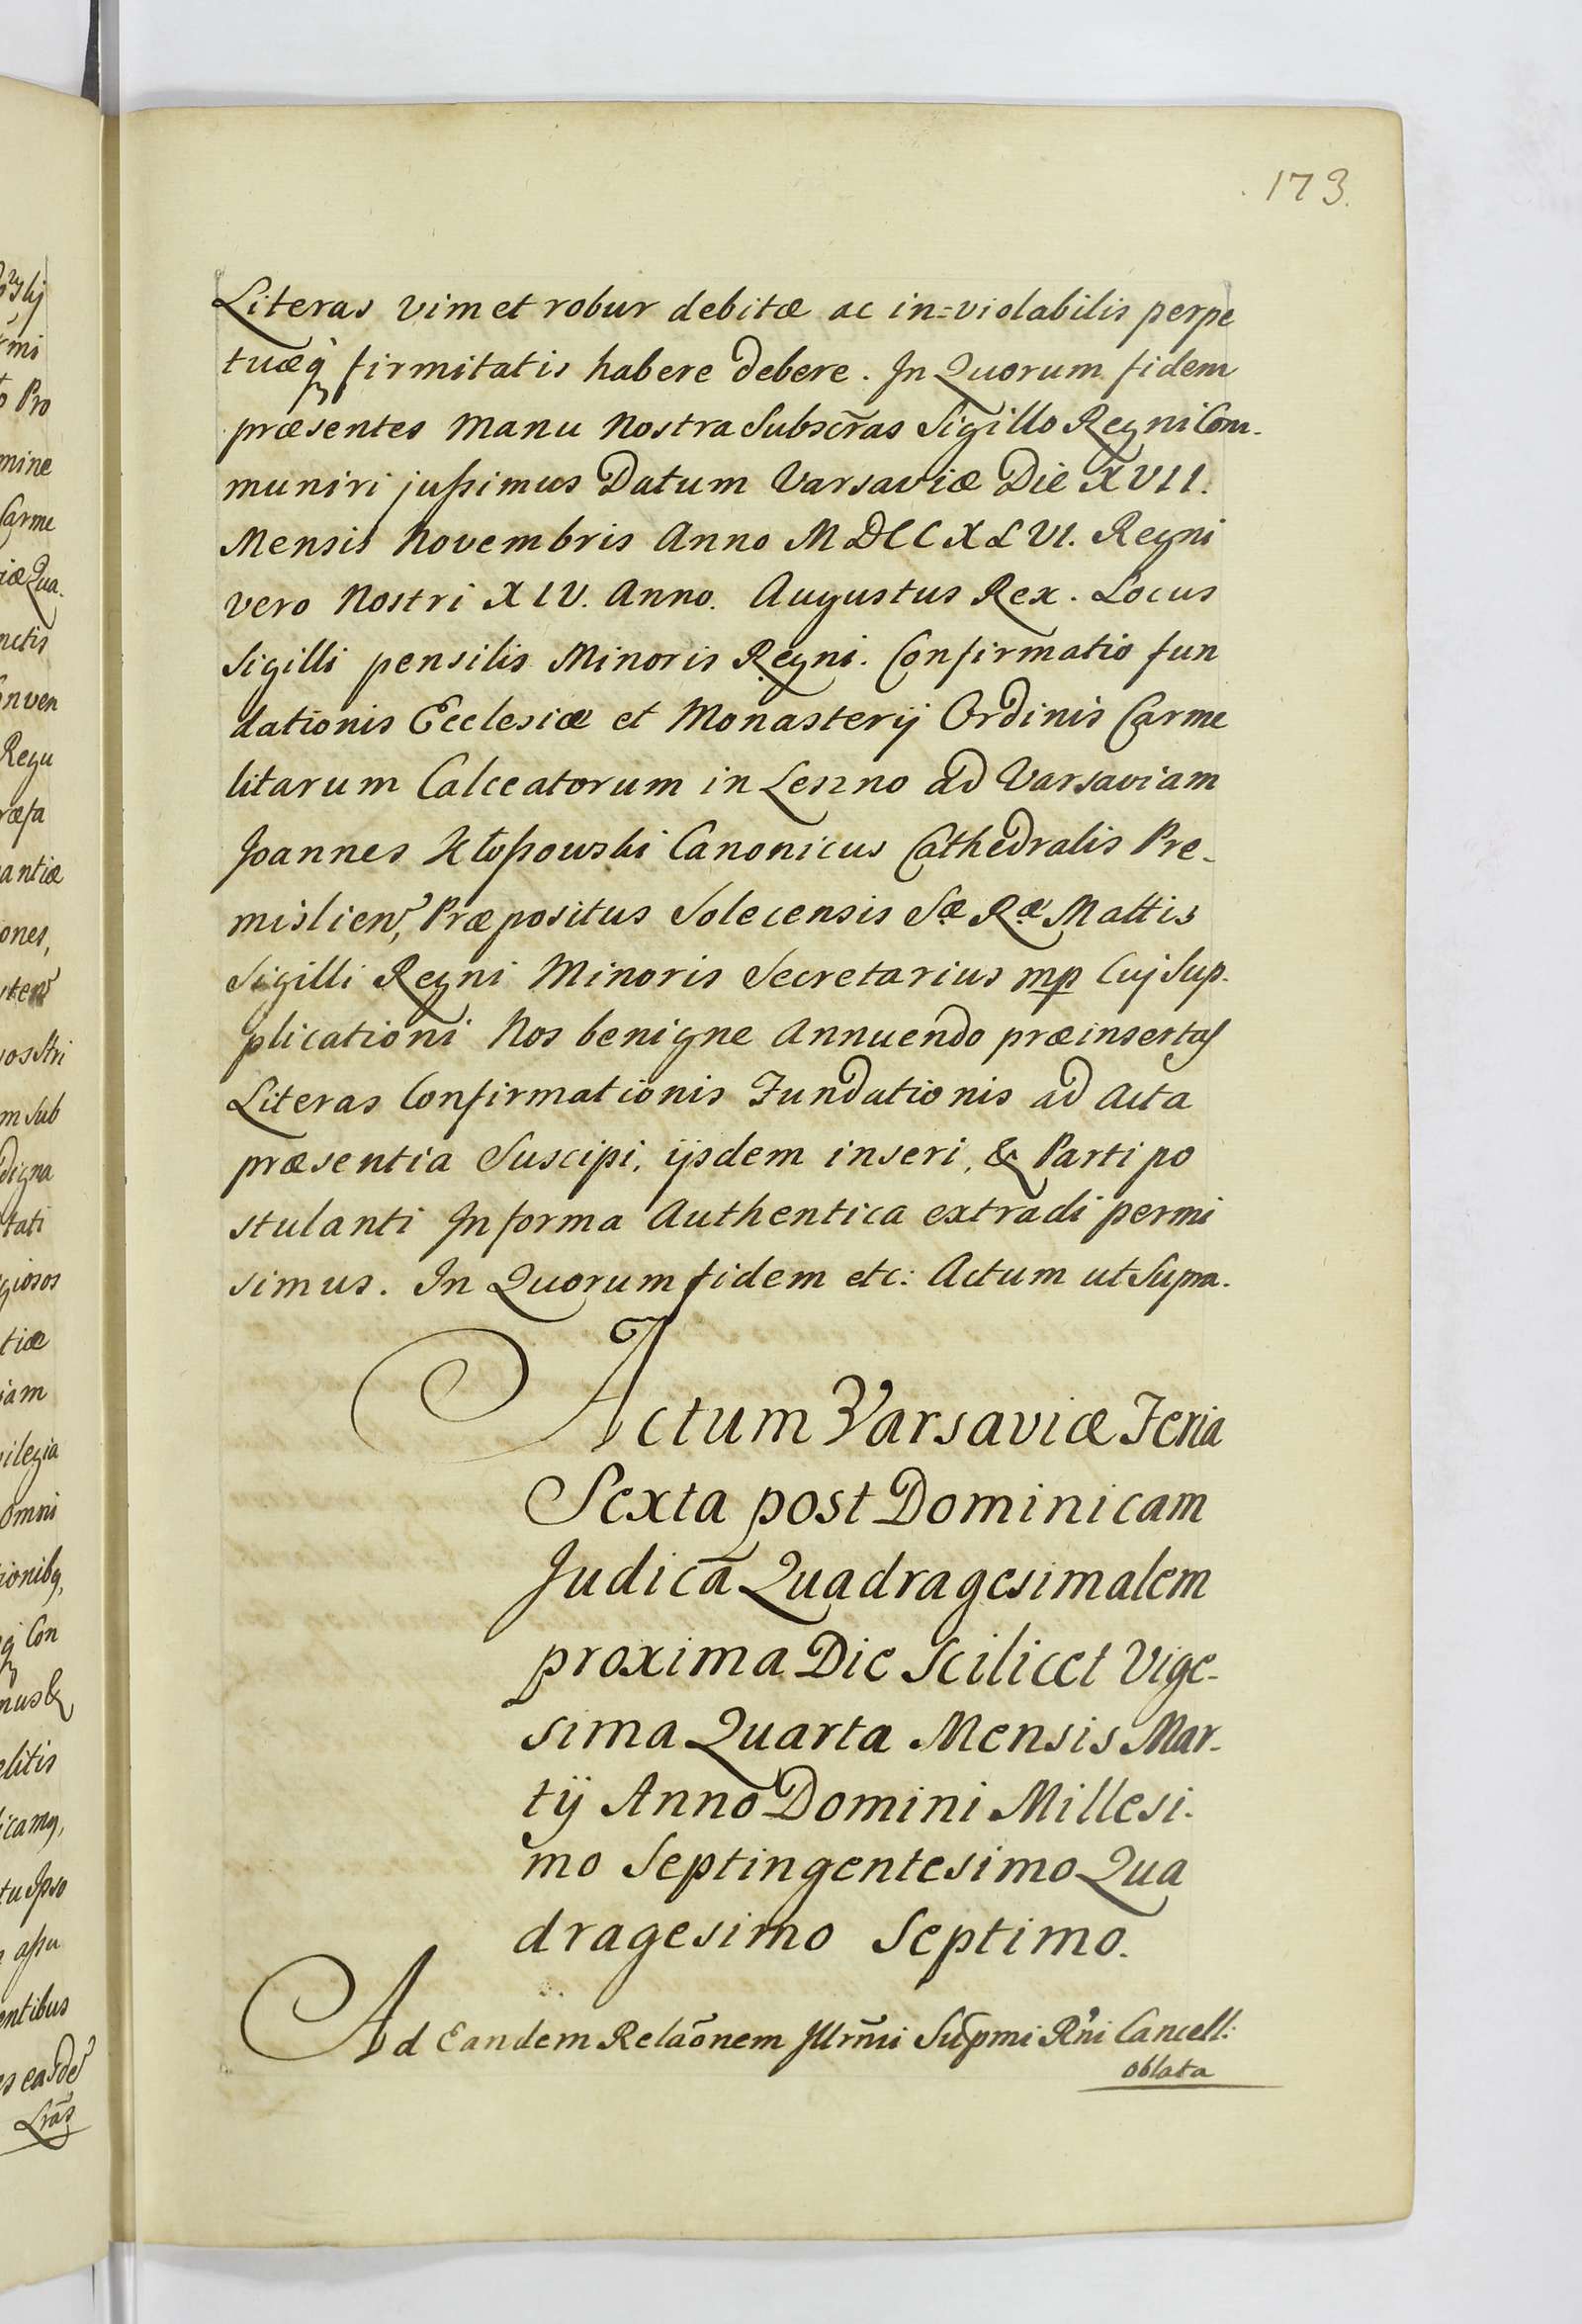 173.
Literas vim et robur debitæ ac in=violabilis perpe
tuæq̀ firmitatis habere debere. In Quorum fidem
præsentes Manu Nostra Subscr̃as Sigillo Regni Com-
muniri jußimus Datum Varsaviæ Die XVII.
Mensis Novembris Anno MDCCXLVI. Regni
vero Nostri XIV. Anno. Augustus Rex. Locus
Sigilli pensilis Minoris Regni. Confirmatio fun
dationis Ecclesiæ et Monasterij Ordinis Carme
litarum Calceatorum in Leszno ad Varsaviam
Joannes Kłoßowski Canonicus Cathedralis Pre-
mislien, Præpositus Solecensis Sæ Ræ Mattis
Sigilli Regni Minoris Secretarius mp Cuj Sup-
plicationi Nos benigne Annuendo præinsertas
Literas Confirmationis Fundationis ad Acta
præsentia Suscipi, ijsdem inseri, & Parti po
stulanti In forma Authentica extradi permi
simus. In Quorum fidem etc: Actum ut Supra.
Actum Varsaviæ Feria
Sexta post Dominicam
Judicã Quadragesimalem
proxima Die Scilicet Vige-
sima Quarta Mensis Mar-
tij Anno Domini Millesi-
mo Septingentesimo Qua
dragesimo Septimo.
Ad Eandem Relaõnem Jllr̃mi Supmi Rñi Cancell:
oblata